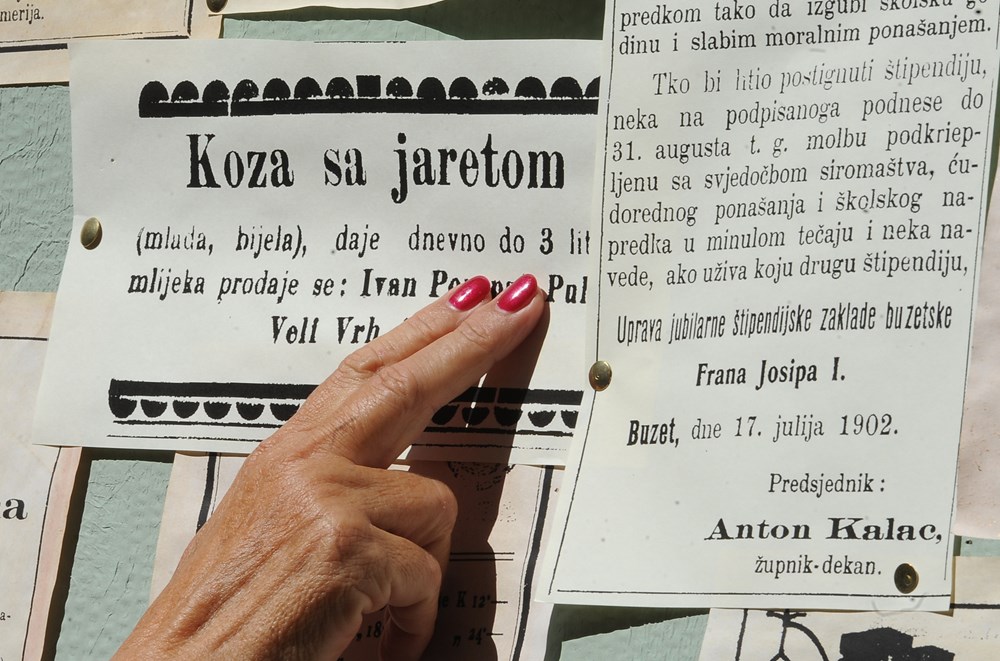 merija.
Koza sa jaretom
(mlada, bijela), daje dnevno do 3 lit
mlijeka prodaje se: Ivan Pul
Veli Vrh
predkom tako da izgubi školsku go-
dinu i slabim moralnim ponašanjem.
Tko bi htio postignuti štipendiju,
neka na podpisanoga podnese do
31. augusta t. g. molbu podkriep-
ljenu sa svjedočbom siromaštva, ću-
dorednog ponašanja i školskog na-
predka u minulom tečaju i neka na-
vede, ako uživa koju drugu štipendiju,
Uprava jubilarne štipendijske zaklade buzetske
Frana Josipa I.
Buzet, dne 17. julija 1902.
Predsjednik:
Anton Kalac,
župnik-dekan.
a
a-
K 12
18
n 24